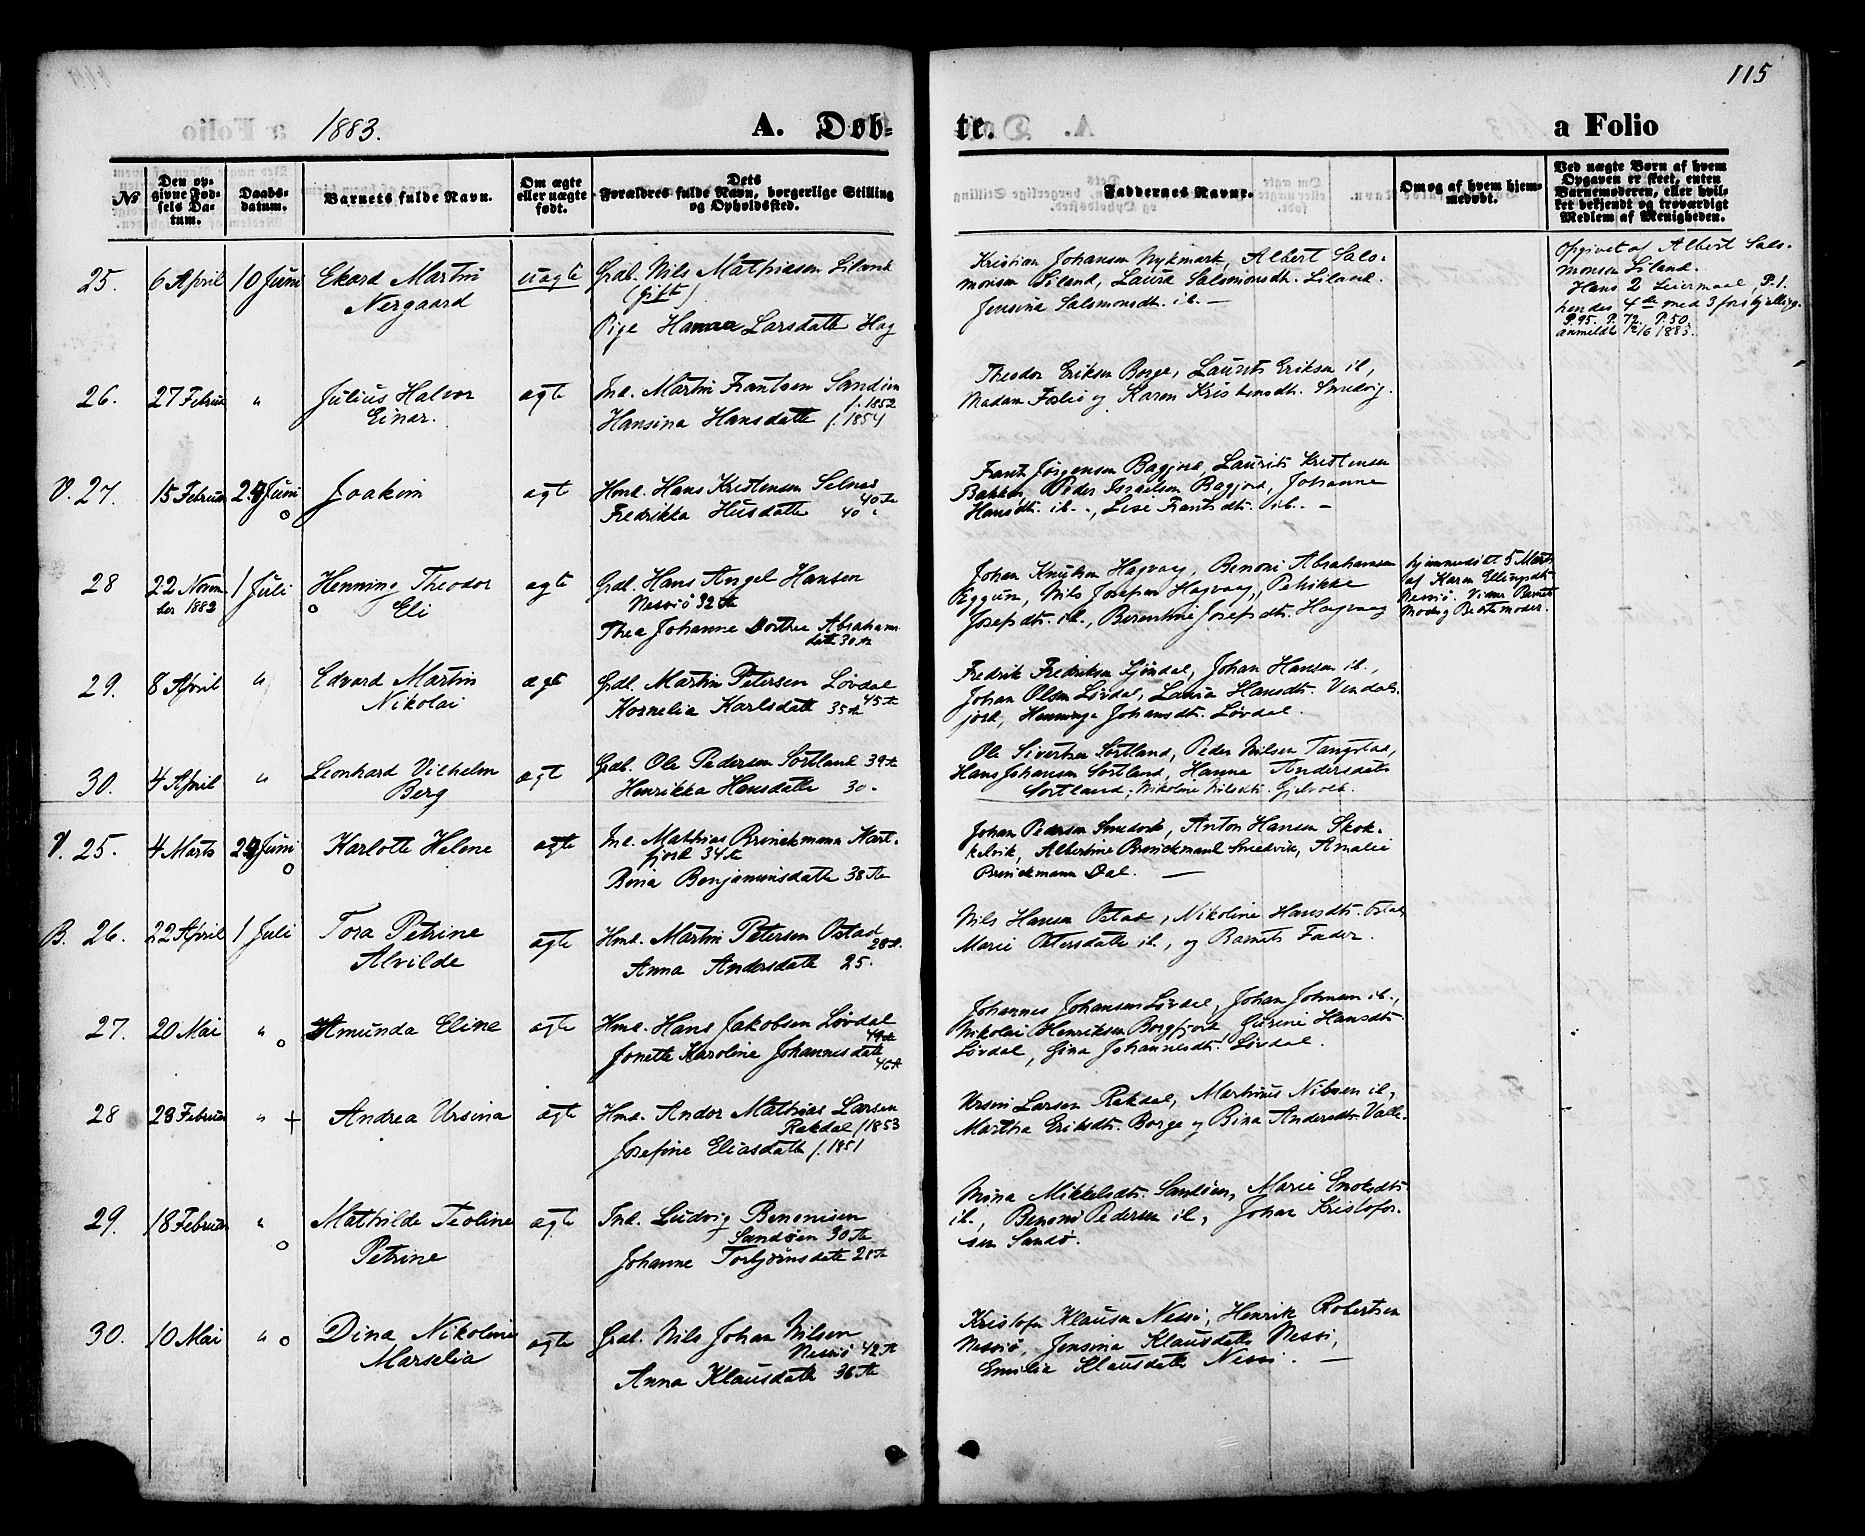 115
1883.
A. Døb-
te.
a Folio
№
Den op-
givne Fød-
sels Da-
tum.
Daabs-
datum.
Barnets fulde Navn.
Om ægte
eller uægte
født.
Dets
Forældres fulde Navn, borgerlige Stilling
og Opholdssted.
Faddernes Navne.
Om og af hvem hjem-
medøbt.
Ved uægte Børn af hvem
Opgaven er skeet, enten
Barnemoderen, eller hvil-
ket bekjendt og troværdigt
Medlem af Menigheden.
25.
6 April
10 Juni
Ekard Martin
Nergaard
uægte
Grdb. Nils Mathiasen Liland
(Gift)
Pige Hanna Larsdatter Hag
Kristian Johansen Nykmark, Albert Sals-
monsen Liland, Laura Salsmonsdt. Liland.
Jensina Salsmonsdt. ib. —
Opgivet af Albert Sals-
monsen Liland.
Hans 2 Leiermaal, P.1.
hendes 4de med 3 forskjellige.
P.95. P.72. P.50.
anmeldt 12/6 1883.
26.
27 Februar
"
Julius Halvor
Einar.
ægte
Ind. Martin Frantsen Sandøen
f. 1852
Hansina Hansdatter f. 1854
Theodor Eriksen Borge, Laurits Eriksen ib,
Madam Foslie og Karen Kristensdt. Smedvig.
V. 27.
15 Februar
24 Juni
Joakim
ægte
Hmd. Hans Kristensen Selnæs
40 År
Fredrikka Husdatter 40 "
Frants Jørgensen Bagjord, Laurits Kristensen
Bakken, Peder Israelsen Bagjord, Johanne
Hansdt. ib., Lise Frantsdt. ib. —
28
22 Novem
ber 1882
1 Juli
Henning Theodor
Eli
ægte
Grdl. Hans Angel Hansen
Nessiø 32 År
Thea Johanne Dorthea Abrahams
datter 30 År
Johan Knutsen Hagvaag, Benoni Abrahamsen
Eggum, Nils Josefsen Hagvaag, Petrikke
Josefsdt. ib., Berentine Josefsdt. Hagvaag
hjemmedøbt 5 Marts
af Karen Ellingsdt.
Nessiø. Vidne Barnets
Mor og Bestemoder.
29.
8 April
"
Edvard Martin
Nikolai
ægte
Grdl. Martin Petersen Løvdal
45 År
Kornelia Karlsdatter 35 År
Fredrik Fredriksen Ljøndal, Johan Hansen ib.,
Johan Olsen Løvdal, Laura Hansdt. Vendals-
jord, Henninge Johansdt. Løvdal.
30.
4 April
"
Leonhard Vilhelm
Berg
ægte
Grdb. Ole Pedersen Sortland 39 År
Henrikka Hansdatter 30 "
Ole Sivertsen Sortland, Peder Nilsen Tangstad,
Hans Johansen Sortland, Hanna Andersdatter
Sortland, Nikoline Nilsdt. Gjelvold.
V. 25.
4 Marts
24 Juni
Karlotte Helene
ægte
Ind. Mathias Brinickmann Hart-
fjord 34 År
Bina Benjaminsdatter 38 År
Johan Pedersen Smedvik, Anton Hansen Skok-
kelvik, Albertine Brinickmand Smedvik, Amalie
Brinickmann Dal. —
B. 26.
22 April
1 Juli
Tora Petrine
Alvilde
ægte
Hmd. Martin Petersen Ostad
28 År.
Anna Andersdatter 25.
Nils Hansen Ostad, Nikoline Hansdt. Ostad
Marie Petersdatter ib, og Barnets Fader.
27.
20 Mai
"
Amunda Eline
ægte
Hmd. Hans Jakobsen Løvdal
49 År
Jonette Karoline Johannesdatter
46 År
Johannes Johansen Løvdal, Johan Johnsen ib.,
Nikolai Henriksen Borgfjord, Gurine Hansdt.
Løvdal, Gina Johannesdt. Løvdal.
28
23 Februar
" +
Andrea Ursina
ægte
Hmd. Andor Mathias Larsen
Rakdal f 1853
Josefine Eliasdatter f. 1851
Ursin Larsen Rakdal, Martinus Nilsen ib,
Martha Eriksdt. Borge og Bina Andersdt. Valle.
29.
18 Februar
"
Mathilde Teoline
Petrine
ægte
Ind. Ludvig Benonisen
Sandøen 30 År
Johanne Torbjørnsdatter 28 År
Mina Mikkelsdt. Sandøen, Marie Enoksdt.
ib., Benoni Pedersen ib, Johan Kristofer-
sen Sandø.
30.
10 Mai
"
Dina Nikoline
Marselia
ægte
Grdb. Nils Johan Nilsen
Nessiø 42 År
Anna Klausdatter 36 År
Kristofer Klausen Nessi, Henrik Robertsen
Nessiø, Jensina Klausdatter Nessi,
Emilia Klausdatter Nessi. —